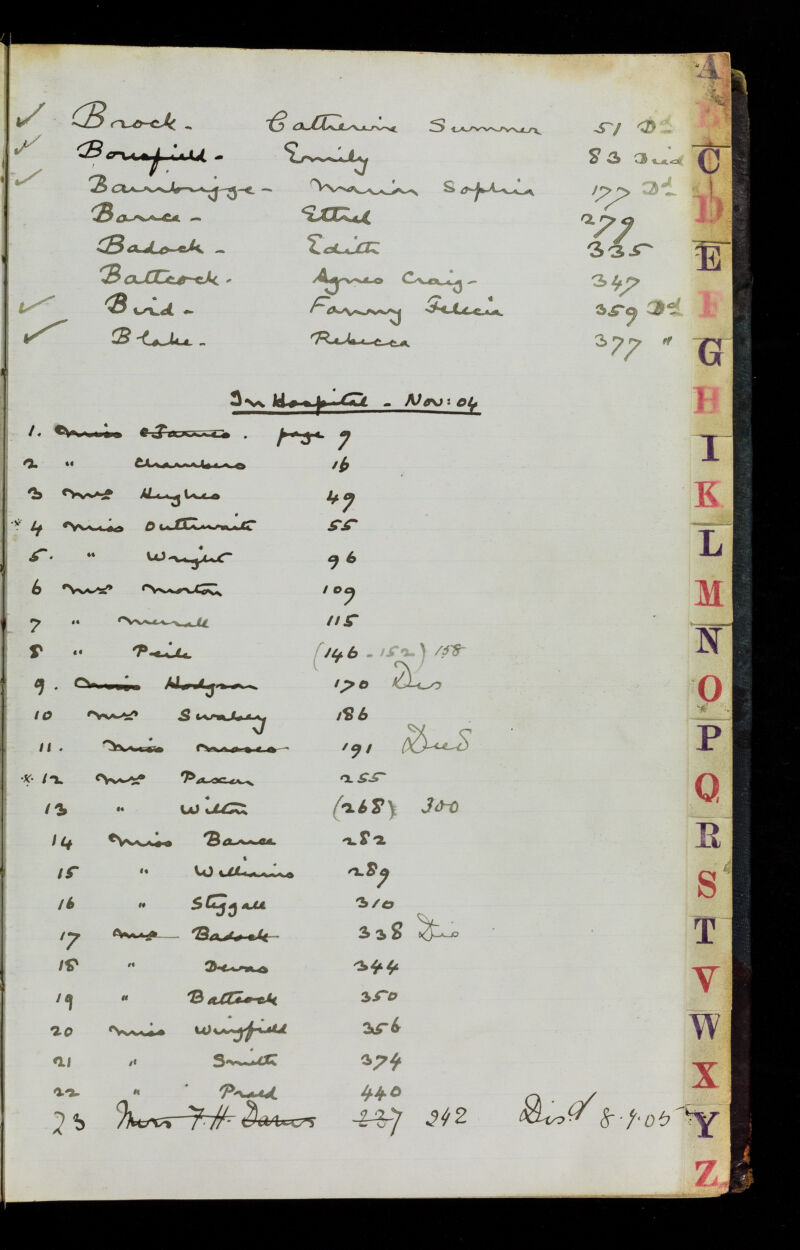 ✓ Brock - Catherine Sumner 51 Dd
✓ Bousfield - Emily 83 Died
✓ Bainbrigge - Marian Sophia 177 Dd
Bance - Ethel 279
Badock - Edith 335
Battcock - Agnes Craig - 347
✓ Bird - Fanny Felicia 359 Dd
✓ Blake - Rebecca 377 "
In Hospital - Nov: 04
1. Miss page 9
2 " Chambers 16
3 Mrs Hughes 49
* 4 Miss Outhwaite 55
5. " Wright 96
6 Mrs Morton 109
7 " Merrall 115
8 " Peile (146 - 152) 158
9. Miss Hodgson 170 Dis
10 Mrs Swabey 186
11. Miss Moses 191 Died
* 12 Mrs Paxon 255
13 " Wilton (268) 300
14 Miss Bance 282
15 " Williams 289
16 " Steggall 310
17 Mrs Badock 338 Dis
18 " Devas 344
19 " Battcock 350
20 Miss Wingfield 356
21 " Smith 374
22 " Praed 440
23 Miss F. H. 237 242 Disd 8.4.05
A
B
C
D
E
F
G
H
I
K
L
M
N
O
P
Q
R
S
T
V
W
X
Y
Z